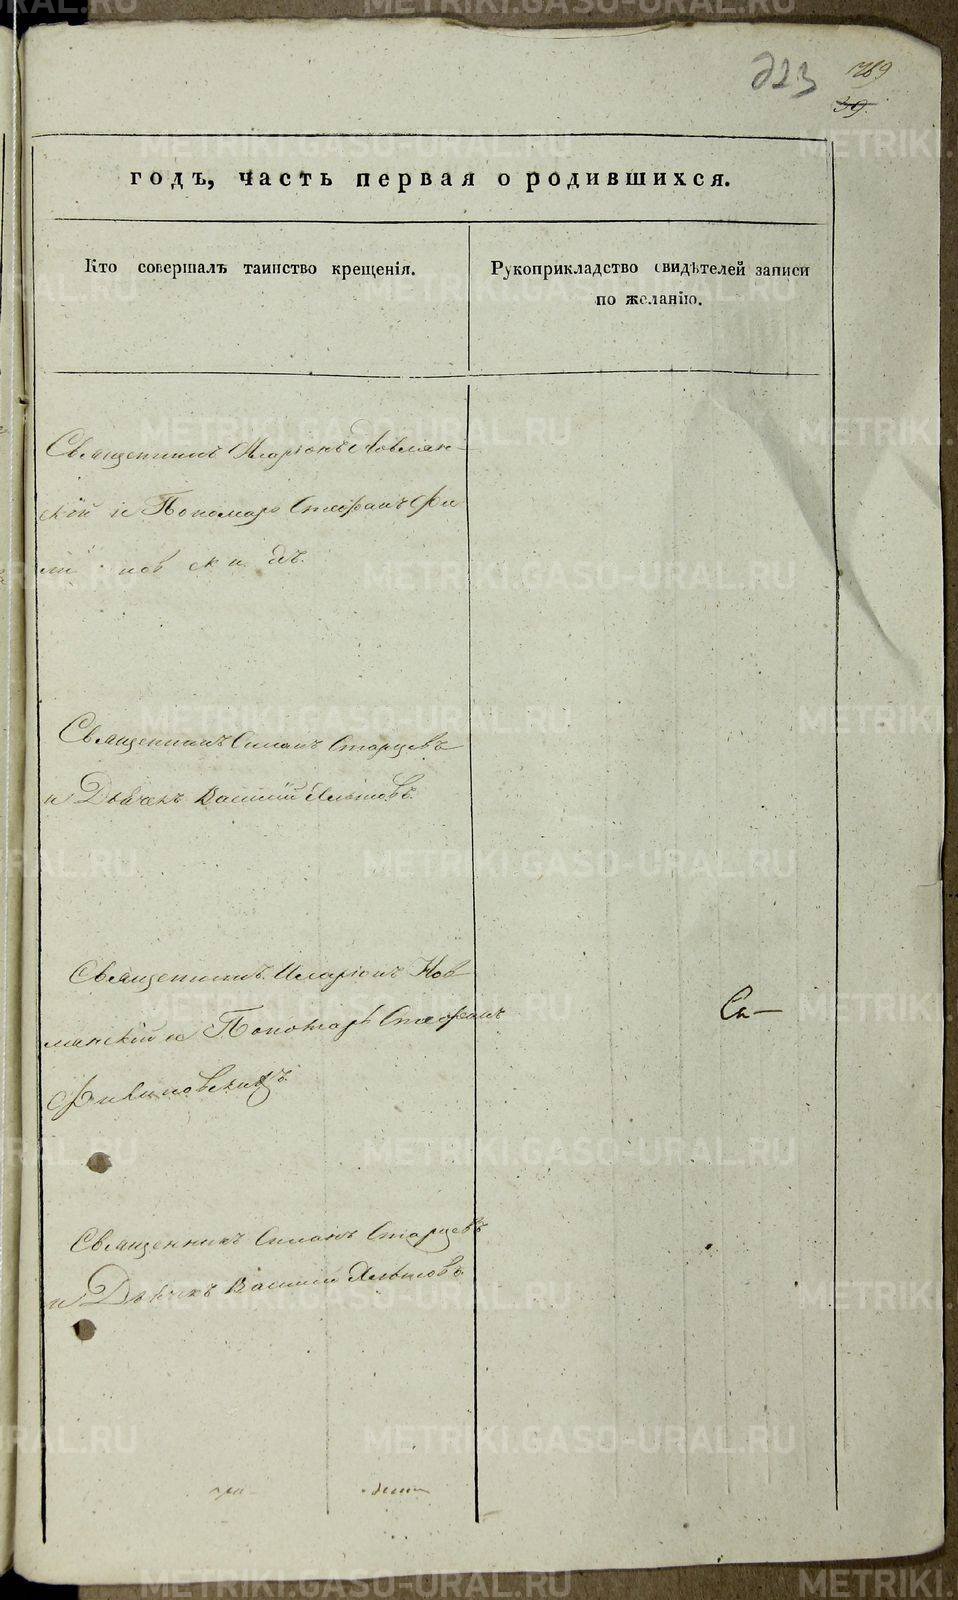 223
1789
39.
годъ, часть первая о родившихся.
Кто совершалъ таинство крещенія.
Рукоприкладство свидѣтелей записи
по желанію.
Священникъ Иларіонъ Новлян-
скій и Пономарь Стефанъ Фи
ли нов скихъ.
Священникъ Симонъ Старцевъ
и Дьячекъ Василій
Священникъ Иларіонъ Нов
лянскій и Пономарь Стефанъ
Филиповскихъ
Са—
Священникъ Симонъ Старцевъ
и Дьячекъ Василій
METRIKI.GASO-URAL.RU